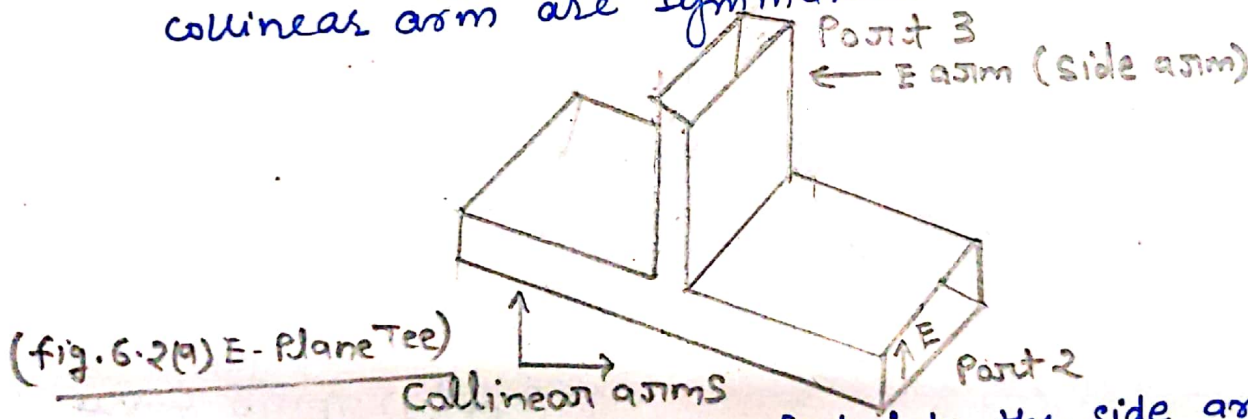 collinear arm are
Port 3
← E arm (side arm)
E
(fig. 6.2(a) E-Plane Tee)
Collinear arms
Port 2
side